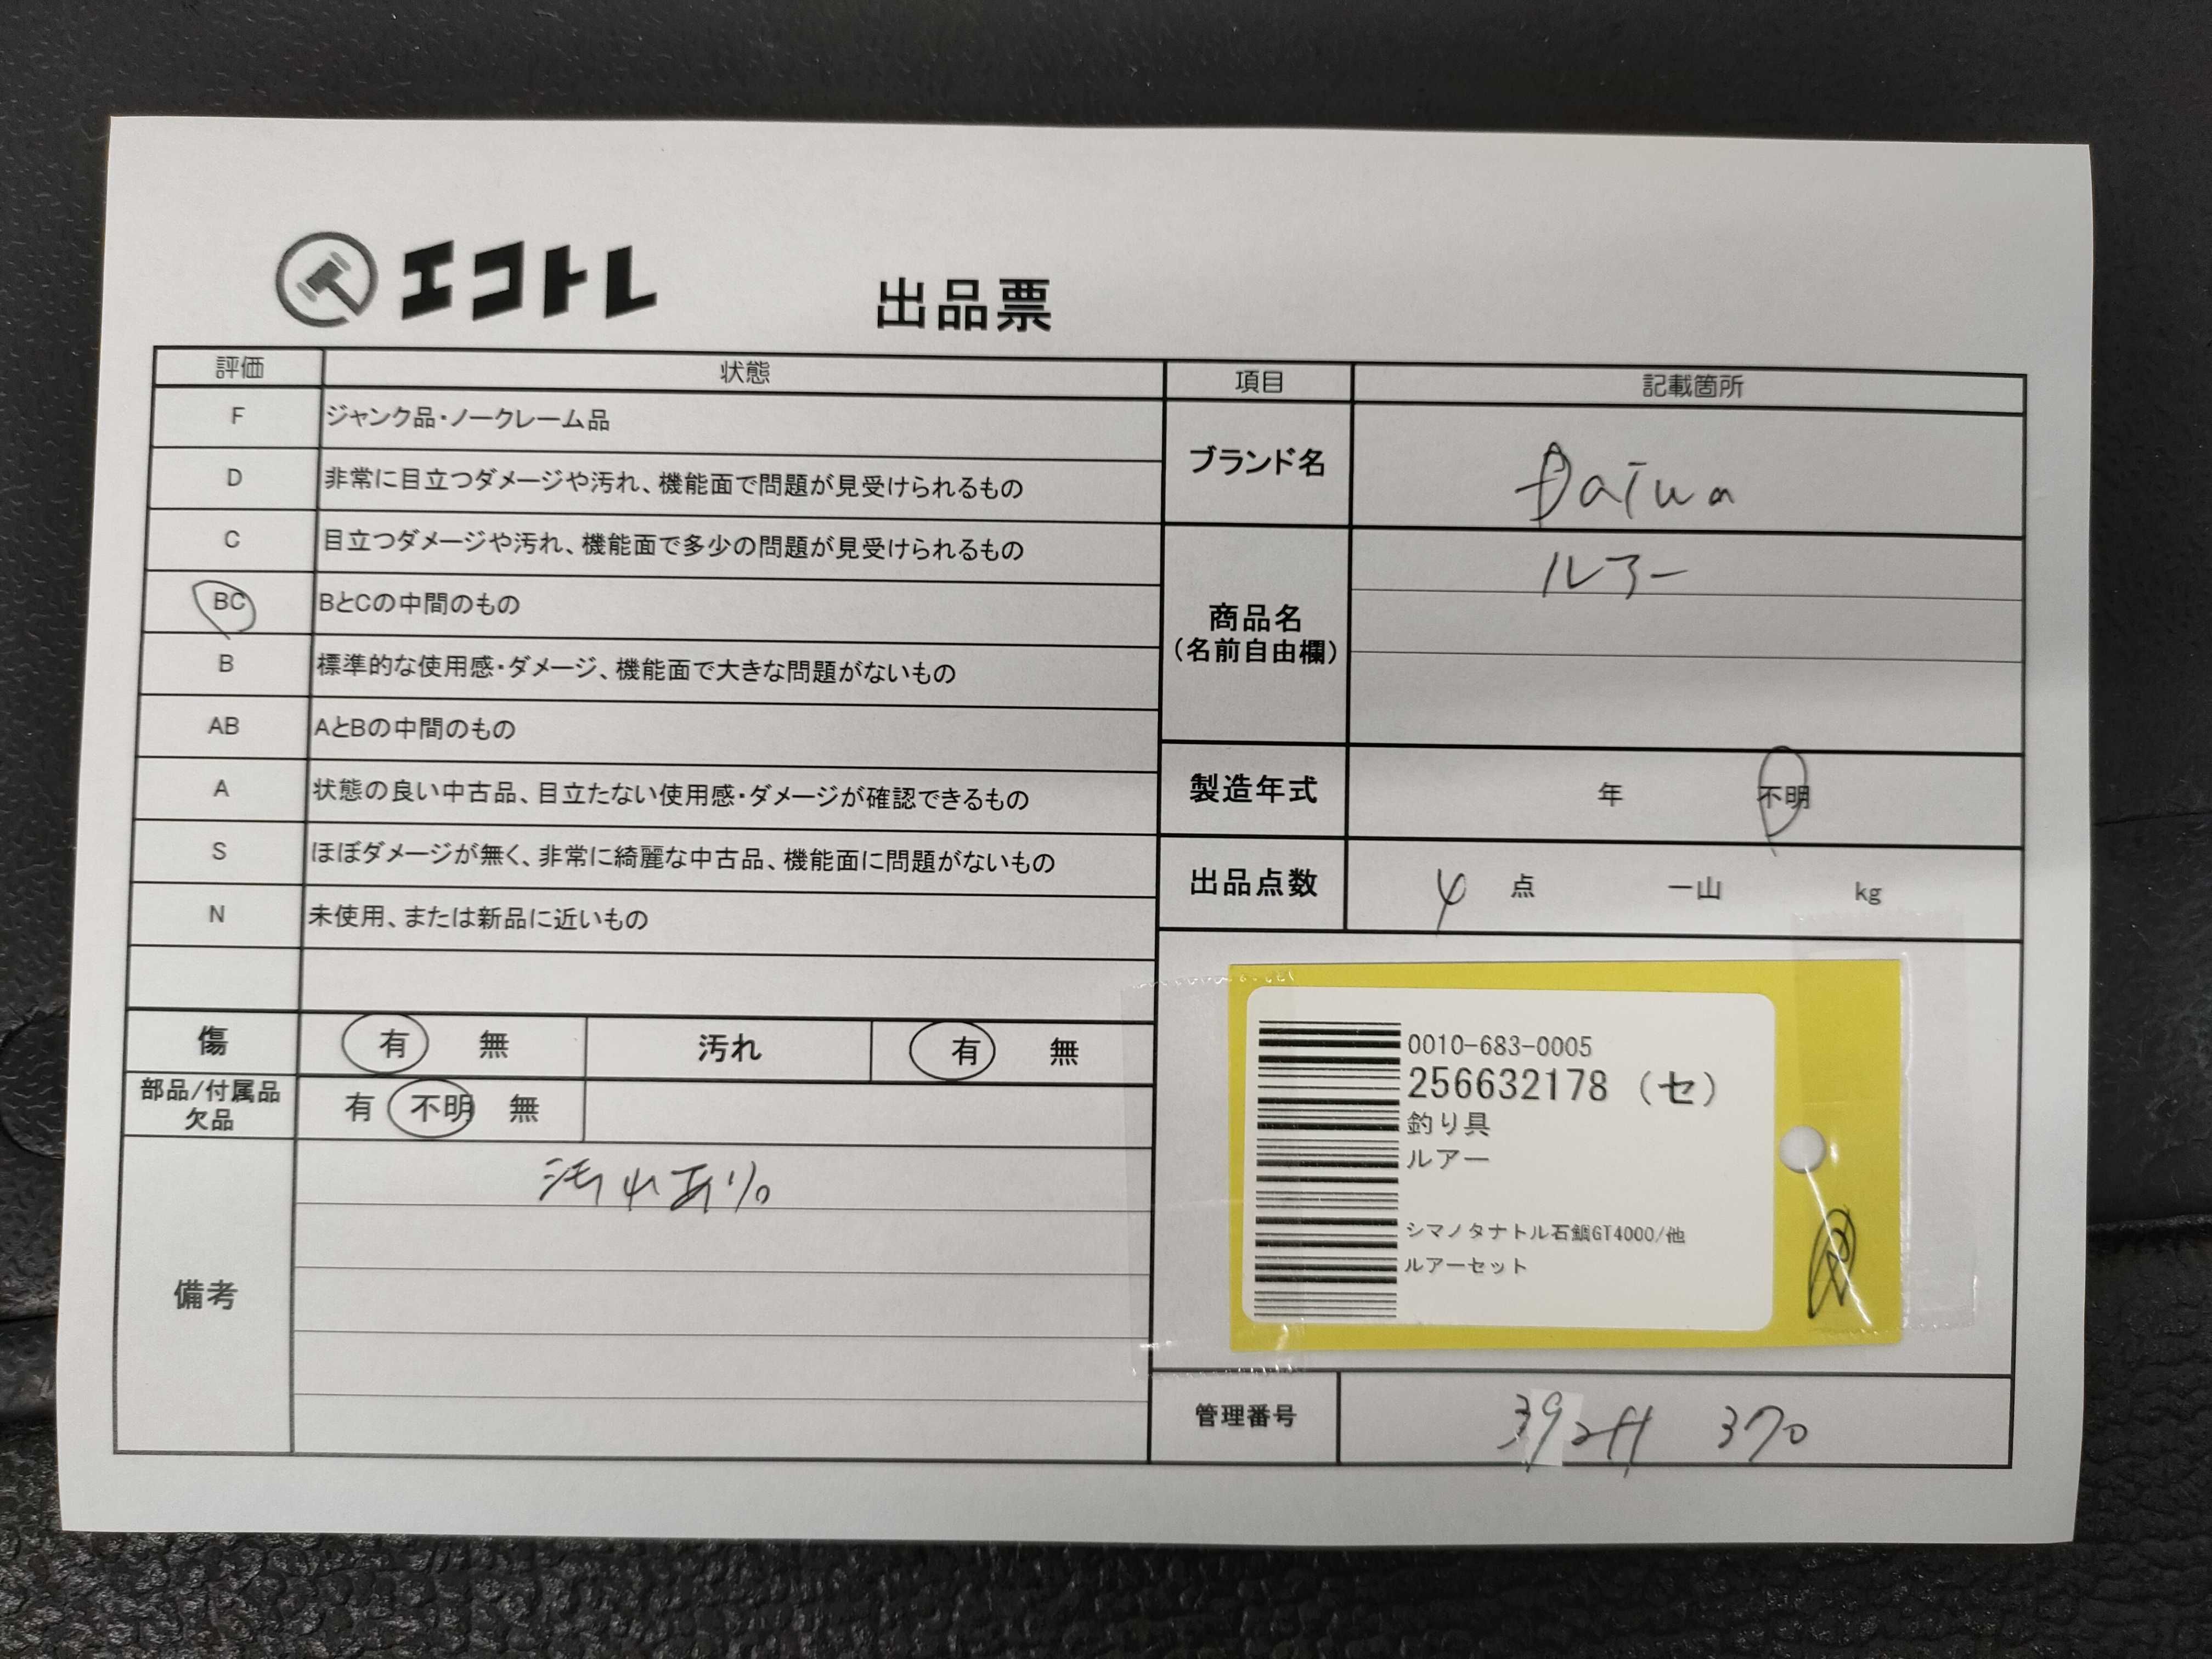 エコトレ
出品票
評価 状態
F ジャンク品・ノークレーム品
D 非常に目立つダメージや汚れ、機能面で問題が見受けられるもの
C 目立つダメージや汚れ、機能面で多少の問題が見受けられるもの
BC BとCの中間のもの
B 標準的な使用感・ダメージ、機能面で大きな問題がないもの
AB AとBの中間のもの
A 状態の良い中古品、目立たない使用感・ダメージが確認できるもの
S ほぼダメージが無く、非常に綺麗な中古品、機能面に問題がないもの
N 未使用、または新品に近いもの
傷 有 無 汚れ 有 無
部品/付属品
欠品
有 不明 無
備考
汚れあり。
項目 記載箇所
ブランド名 Daiwa
商品名
(名前自由欄)
ルアー
製造年式 年 不明
出品点数 4 点 一山 kg
0010-683-0005
256632178 (セ)
釣り具
ルアー
シマノタナトル石鯛GT4000/他
ルアーセット
管理番号 370